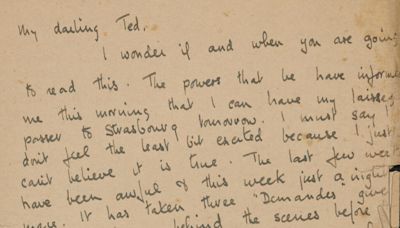 My darling Ted.
I wonder if and when you are going
to read this. The powers that be have inform
me this morning that I can have my laissez
passer to Strasbourg tomorrow. I must say I
don't feel the least bit excited because I just
can't believe it is true. The last few week
have been awful & this week just a night
mare. It has taken three "Demandes" give
behind the scenes before